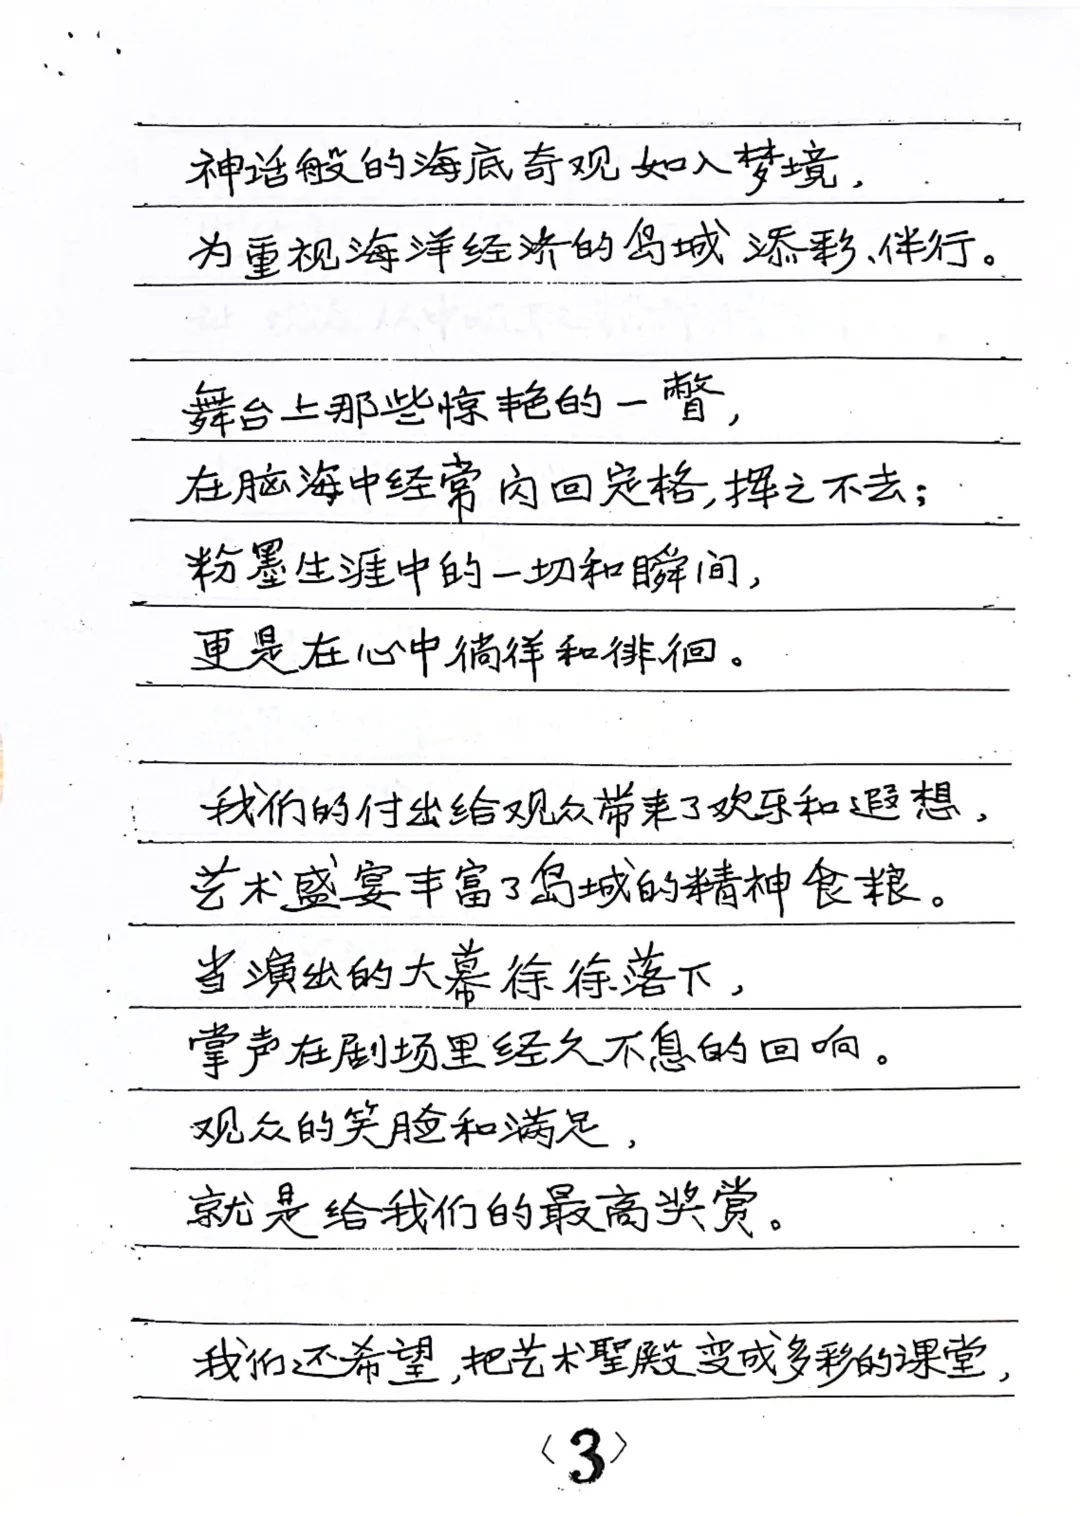 神话般的海底奇观如入梦境，
为重视海洋经济的岛城添彩、伴行。
舞台上那些惊艳的一瞥，
在脑海中经常闪回定格，挥之不去；
粉墨生涯中的一切和瞬间，
更是在心中徜徉和徘徊。
我们的付出给观众带来了欢乐和遐想，
艺术盛宴丰富了岛城的精神食粮。
当演出的大幕徐徐落下，
掌声在剧场里经久不息的回响。
观众的笑脸和满足，
就是给我们的最高奖赏。
我们还希望，把艺术聖殿变成多彩的课堂，
〈3〉